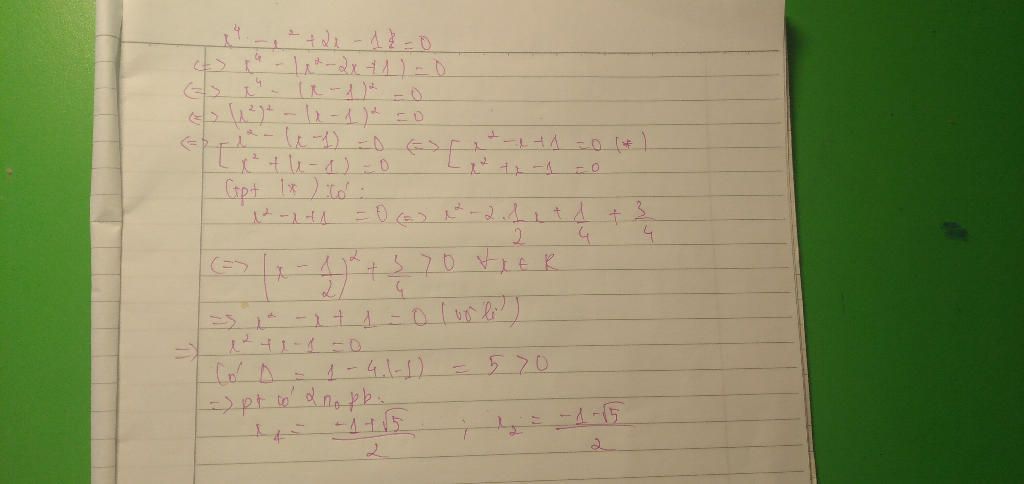 x⁴ - x² + 2x - 1 = 0
<=> x⁴ - (x² - 2x + 1) = 0
<=> x⁴ - (x - 1)² = 0
<=> (x²)² - (x - 1)² = 0
<=> [ x² - (x - 1) = 0 <=> [ x² - x + 1 = 0 (*)
x² + (x - 1) = 0 x² + x - 1 = 0
Gpt (*) có:
x² - x + 1 = 0 <=> x² - 2.1/2 x + 1/4 + 3/4
<=> (x - 1/2)² + 3/4 > 0 ∀x ∈ R
=> x² - x + 1 = 0 (vô lí)
=> x² + x - 1 = 0
Có Δ = 1 - 4.(-1) = 5 > 0
=> pt có 2 no pb:
x₁ = (-1+√5)/2 ; x₂ = (-1-√5)/2